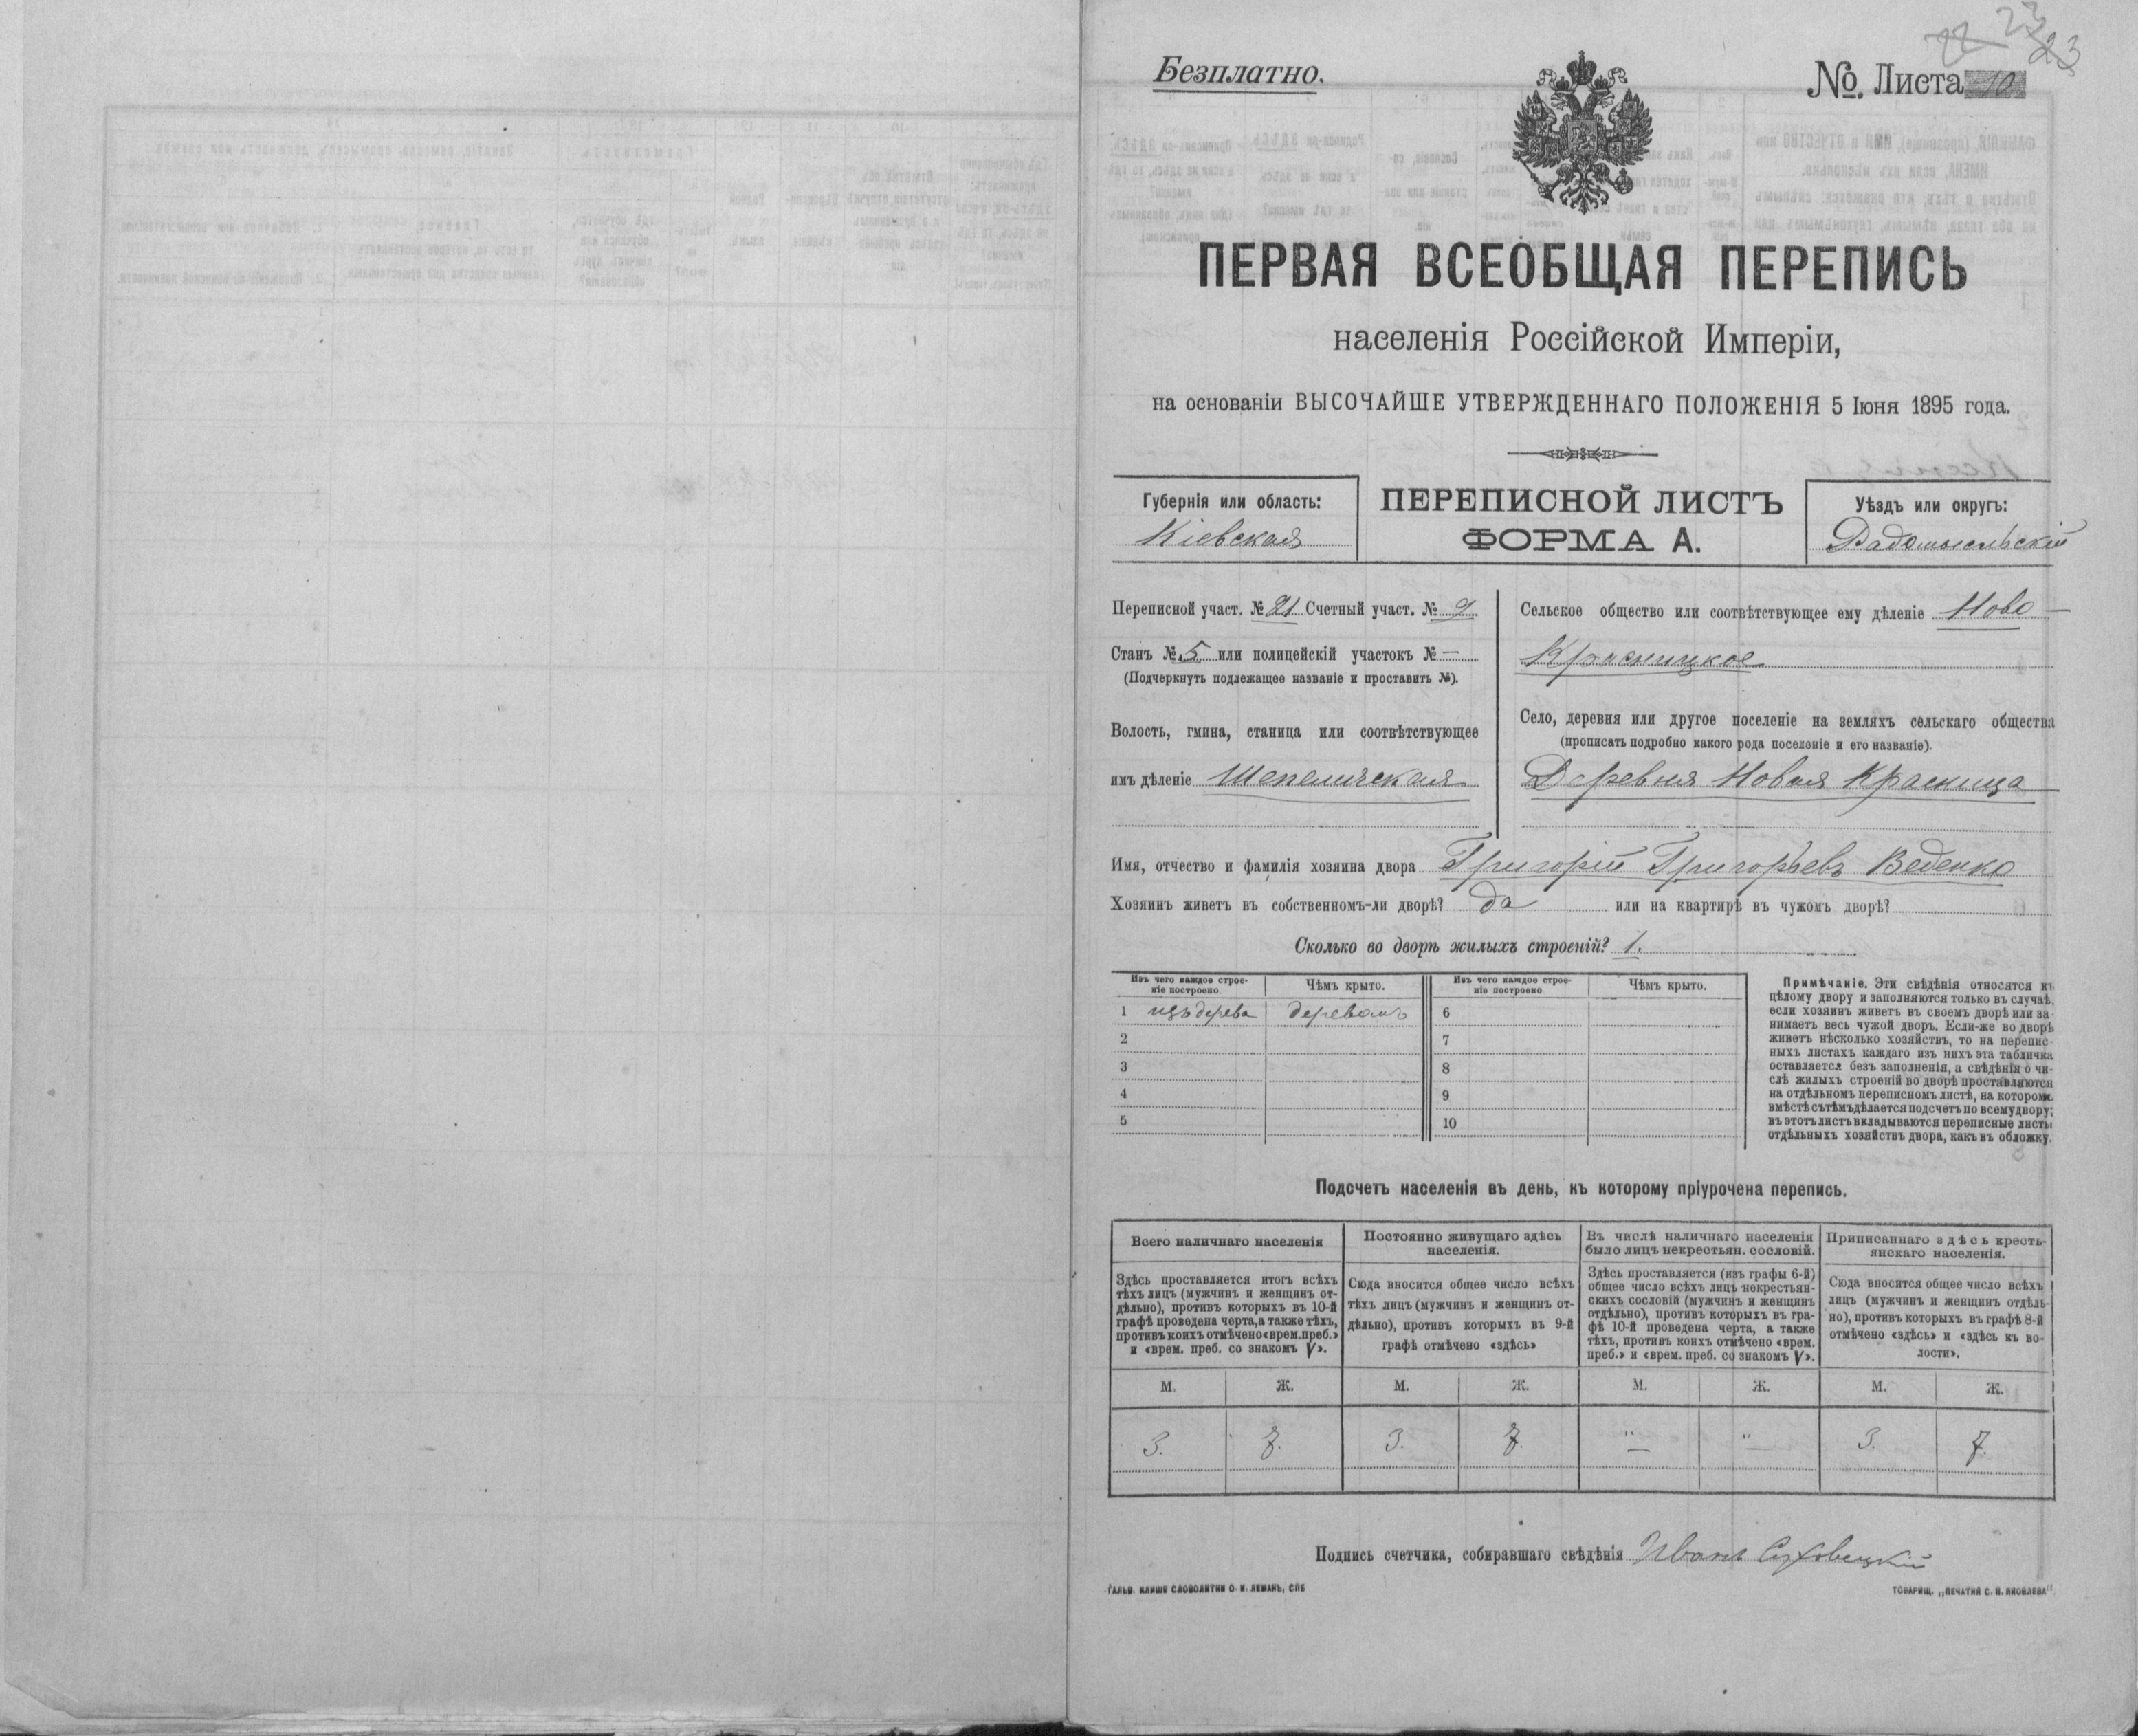 23
23
Безплатно.
№. Листа 10
ПЕРВАЯ ВСЕОБЩАЯ ПЕРЕПИСЬ
населенія Россійской Имперіи,
на основаніи ВЫСОЧАЙШЕ УТВЕРЖДЕННАГО ПОЛОЖЕНІЯ 5 Іюня 1895 года.
Губернія или область:
Кіевская
ПЕРЕПИСНОЙ ЛИСТЪ
ФОРМА А.
Уѣздъ или округъ:
Радомысльскій
Переписной участ. № 21 Счетный участ. № 9
Станъ № 5 или полицейскій участокъ № —
(Подчеркнуть подлежащее названіе и проставить №).
Волость, гмина, станица или соотвѣтствующее
имъ дѣленіе Шепеличская
Сельское общество или соотвѣтствующее ему дѣленіе Ново-
Красницкое
Село, деревня или другое поселеніе на земляхъ сельскаго общества
(прописать подробно какого рода поселеніе и его названіе).
Деревня Новая Красница
Имя, отчество и фамилія хозяина двора Григорій Григорьевъ Веденко
Хозяинъ живетъ въ собственномъ-ли дворѣ? да или на квартирѣ въ чужомъ дворѣ?
Сколько во дворѣ жилыхъ строеній? 1.
Изъ чего каждое строе-
ніе построено.
Чѣмъ крыто.
Изъ чего каждое строе-
ніе построено
Чѣмъ крыто.
1 изъ дерева деревомъ 6
2 7
3 8
4 9
5 10
Примѣчаніе. Эти свѣдѣнія относятся къ
цѣлому двору и заполняются только въ случаѣ,
если хозяинъ живетъ въ своемъ дворѣ или за-
нимаетъ весь чужой дворъ. Если-же во дворѣ
живетъ нѣсколько хозяйствъ, то на перепис-
ныхъ листахъ каждаго изъ нихъ эта табличка
оставляется безъ заполненія, а свѣдѣнія о чи-
слѣ жилыхъ строеній во дворѣ проставляются
на отдѣльномъ переписномъ листѣ, на которомъ
вмѣстѣ съ тѣмъ дѣлается подсчетъ по всему двору;
въ этотъ листъ вкладываются переписные листы
отдѣльныхъ хозяйствъ двора, какъ въ обложку.
Подсчетъ населенія въ день, къ которому пріурочена перепись.
Всего наличнаго населенія
Здѣсь проставляется итогъ всѣхъ
тѣхъ лицъ (мужчинъ и женщинъ от-
дѣльно), противъ которыхъ въ 10-й
графѣ проведена черта, а также тѣхъ,
противъ коихъ отмѣчено «врем. преб.»
и «врем. преб. со знакомъ V».
Постоянно живущаго здѣсь
населенія.
Сюда вносится общее число всѣхъ
тѣхъ лицъ (мужчинъ и женщинъ от-
дѣльно), противъ которыхъ въ 9-й
графѣ отмѣчено «здѣсь»
Въ числѣ наличнаго населенія
было лицъ некрестьян. сословій.
Здѣсь проставляется (изъ графы 6-й)
общее число всѣхъ лицъ некрестьян-
скихъ сословій (мужчинъ и женщинъ
отдѣльно), противъ которыхъ въ гра-
фѣ 10-й проведена черта, а также
тѣхъ, противъ коихъ отмѣчено «врем.
преб.» и «врем. преб. со знакомъ V».
Приписаннаго здѣсь кресть-
янскаго населенія.
Сюда вносится общее число всѣхъ
лицъ (мужчинъ и женщинъ отдѣль-
но), противъ которыхъ въ графѣ 8-й
отмѣчено «здѣсь» и «здѣсь къ во-
лости».
М. Ж. М. Ж. М. Ж. М. Ж.
3. 7. 3. 7. " — " — 3. 7.
Подпись счетчика, собиравшаго свѣдѣнія Иванъ Суховецкій
ГАЛЬВ. КЛИШЕ СЛОВОЛИТНИ О. И. ЛЕМАНЪ, СПБ
ТОВАРИЩ. „ПЕЧАТНЯ С. П. ЯКОВЛЕВА"